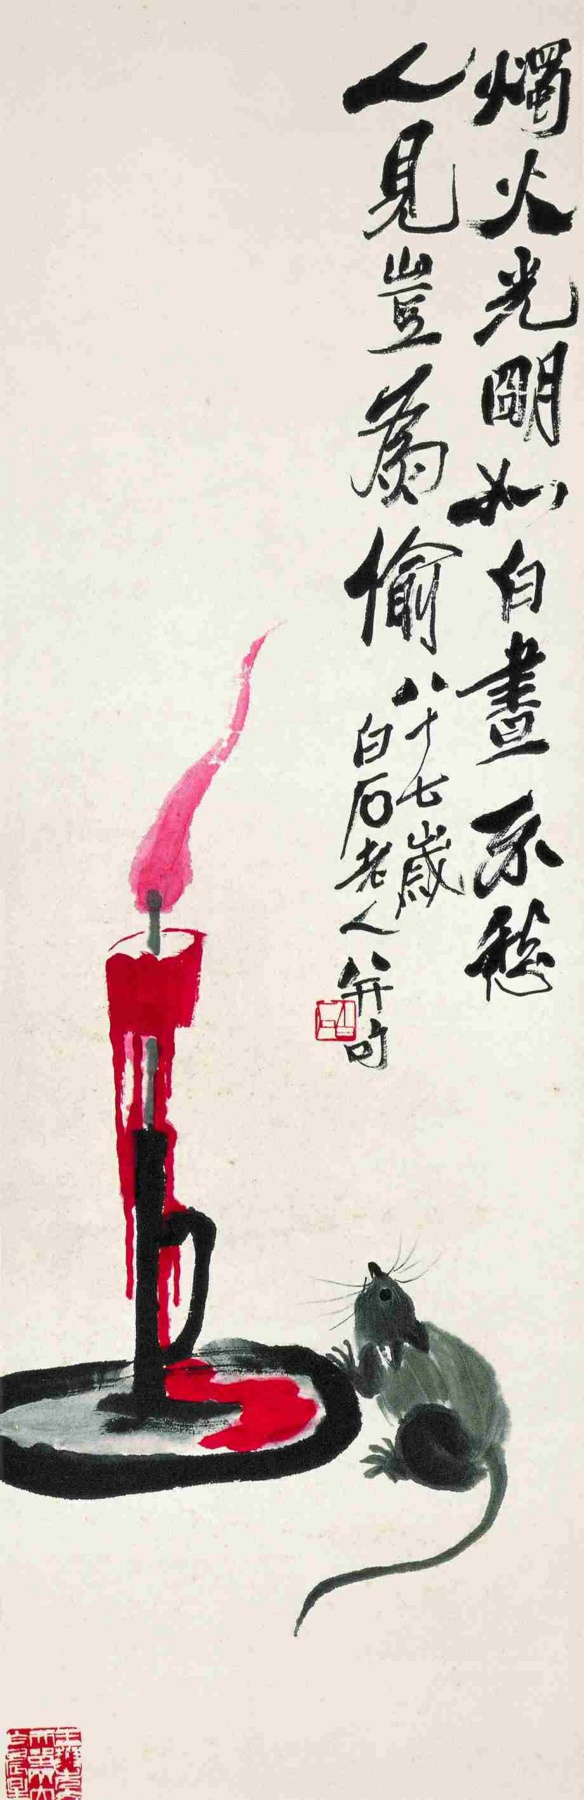 燭火光明如白晝不愁
人見豈為偷
八十七歲
白石老人并句